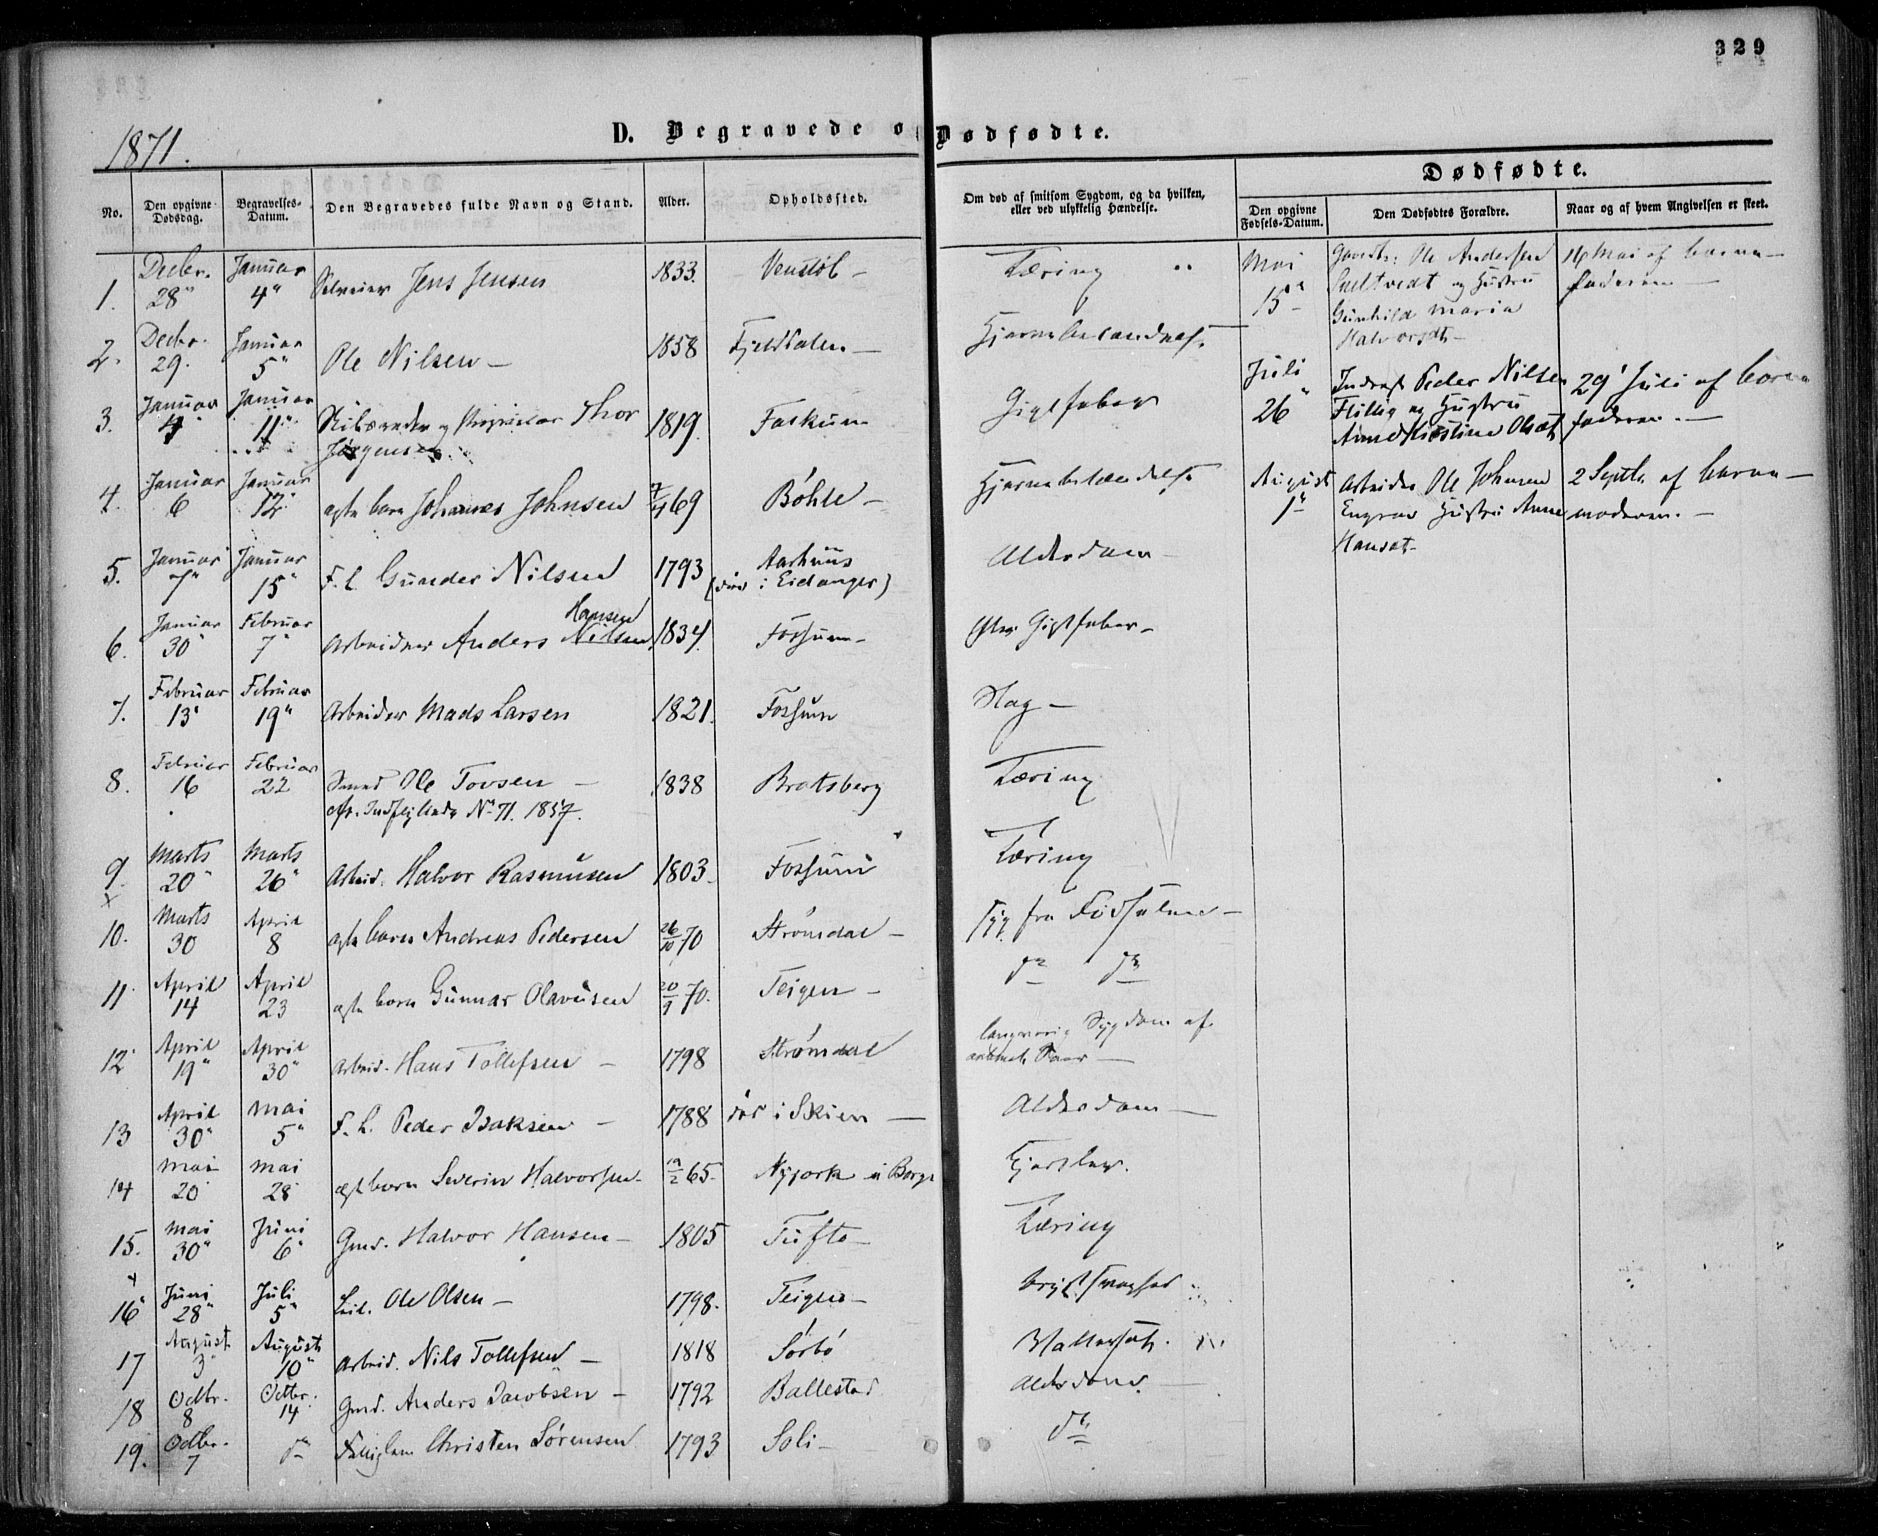 329
1871.
D. Begravede og Dødfødte.
Dødfødte.
No.
Den opgivne Dødsdag.
Begravelses-Datum.
Den Begravedes fulde Navn og Stand.
Alder.
Opholdssted.
Om død af smitsom Sygdom, og da hvilken, eller ved ulykkelig Hændelse.
Den opgivne Fødsels-Datum.
Den Dødfødtes Forældre.
Naar og af hvem Angivelsen er skeet.
1. Decbr. 28" Januar 4" Jens Jensen 1833. Venstøb - Tæring
2. Decbr. 29. Januar 5" Ole Nilsen - 1858 - Hjernebetændelse
3. Januar 4 Januar 11" Kirkesanger og Thor
Jørgensen 1819 Gigtfeber
4. Januar 6 Januar 12" ægte barn Johannes Johnsen 7/4 69 Bøhle - Hjernebetændelse
5. Januar 7" Januar 15" F. L. Gunder Nilsen 1793 Aarhuus
(død i Eidanger) Alderdom -
6. Januar 30" Februar 7" Arbeider Anders Nilsen Hansen 1834 Fossum - Gigtfeber -
7. Februar 13" Februar 19" Arbeider Mads Larsen 1821. Fossum Slag -
8. Februar 16 Februar 22 Ole Tovsen - 1838 Bratsberg Tæring
No 71. 1857.
9. Marts 20" Marts 26" Arbeid. Halvor Rasmusen 1803 Fossum Tæring
10. Marts 30 April 8 ægte barn Andreas Pedersen 26/10 70 Strømdal - Syg fra Fødselen -
11. April 14 April 23 ægte barn Gunnar Olavusen 20/9 70. Teigen - do do
12 April 19" April 30" Arbeid. Hans Tollefsen - 1798 Strømdal langvarig Sygdom af
Saar -
13 April 30" Mai 5" F. L. Peder Isaksen - 1788 død i Skien - Alderdom -
14 Mai 20 Mai 28 ægte barn Severin Halvorsen - 65 - Nyjork u Borge
15. Mai 30" Juni 6" Gmd. Halvor Hansen - 1805 Tufte - Tæring
16 Juni 28" Juli 5" Leil. Ole Olsen - 1798. Teigen - Brystsvaghed
17 August 3 August 10" Arbeid. Nils Tollefsen - 1818 Sørbø Vattersot.
18 Octbr. 8 Octbr. 14 Gmd. Anders Jacobsen - 1792 Ballestad Alderdom -
19. Octbr. 7 do Christen Sørensen 1793 Soli - do
Mai 15" Ole Andersen
og Hustru
Gunhild Maria
Halvorsdt. -
14 Mai af barne-
faderen -
Juli 26" Inderst Peder Nilsen
og Hustru
Anne Kirstine Olsdt.
29' Juli af barne
faderen. -
August 1" Arbeider Ole Johnsen
Hustru Anne
Hansdt.
2 Septbr. af barne-
moderen. -